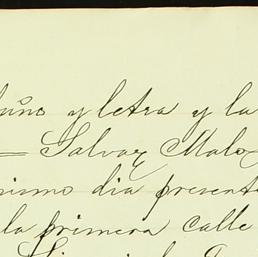 puño y letra y la
= Salvax Malo
mismo dia present
la primera calle